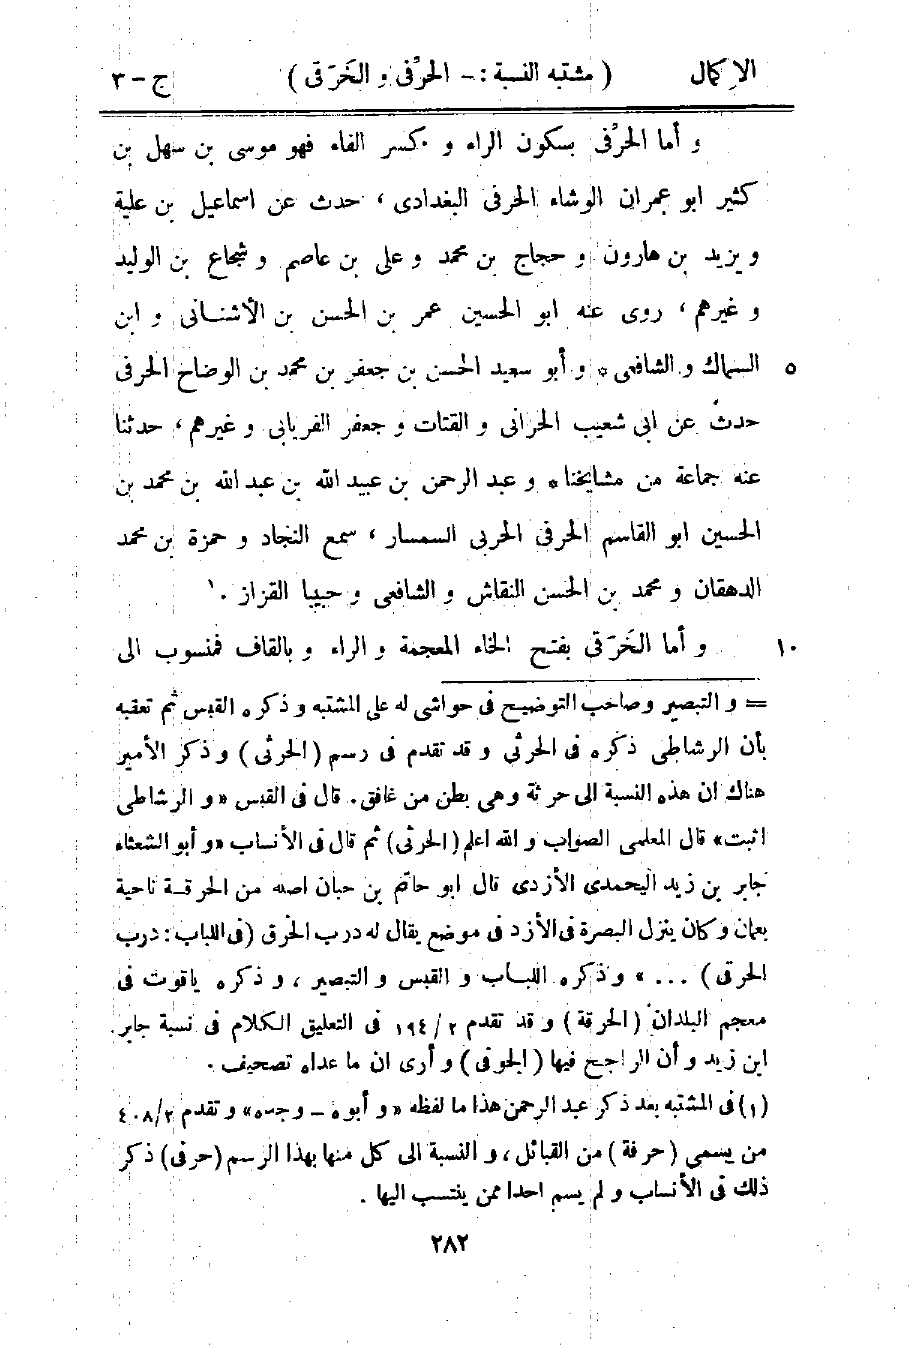 الإكمال ( مشتبه النسبة : – الحرْفى و الخَرَقى ) ج – ٣
و أما الحرْفى بسكون الراء و كسر الفاء فهو موسى بن سهل بن
كثير ابو عمران الوشاء الحرفى البغدادى ، حدث عن اسماعيل بن علية
و يزيد بن هارون و حجاج بن محمد و على بن عاصم و شجاع بن الوليد
و غيرهم ، روى عنه ابو الحسين عمر بن الحسن بن الأشنانى و ابن
السماك و الشافعى * و أبو سعيد الحسن بن جعفر بن محمد بن الوضاح الحرفى ٥
حدث عن ابى شعيب الحرانى و القتات و جعفر الفريابى و غيرهم ، حدثنا
عنه جماعة من مشايخنا * و عبد الرحمن بن عبيد الله بن عبد الله بن محمد بن
الحسين ابو القاسم الحرفى الحربى السمسار ، سمع النجاد و حمزة بن محمد
الدهقان و محمد بن الحسن النقاش و الشافعى و حبيبا القزاز . ١
و أما الخَرَقى بفتح الخاء المعجمة و الراء و بالقاف فمنسوب الى ١٠
= و التبصير و صاحب التوضيح فى حواشى له على المشتبه و ذكره القبس ثم تعقبه
بأن الرشاطى ذكره فى الحرثى و قد تقدم فى رسم ( الحرثى ) و ذكر الأمير
هناك ان هذه النسبة الى حرثة وهى بطن من غافق . قال فى القبس « و الرشاطى
اثبت » قال المعلمى الصواب و الله اعلم ( الحرثى ) ثم قال فى الأنساب « و أبو الشعثاء
جابر بن زيد اليحمدى الأزدى قال ابو حاتم بن حبان اصله من الحرقة ناحية
بعمان و كان ينزل البصرة فى الأزد فى موضع يقال له درب الخرق ( فى اللباب : درب
الحرقى ) ... » و ذكره اللباب و القبس و التبصير ، و ذكره ياقوت فى
معجم البلدان ( الحرقة ) و قد تقدم ٢ / ١٩٤ فى التعليق الكلام فى نسبة جابر
ابن زيد و أن الراجح فيها ( الجوفى ) و أرى ان ما عداه تصحيف .
( ١ ) فى المشتبه بعد ذكر عبد الرحمن هذا ما لفظه « و أبوه – وجده » و تقدم ٢ / ٤٠٨
من يسمى ( حرفة ) من القبائل ، و النسبة الى كل منها بهذا الرسم ( حرفى ) ذكر
ذلك فى الأنساب و لم يسم احدا ممن ينتسب اليها .
٢٨٢